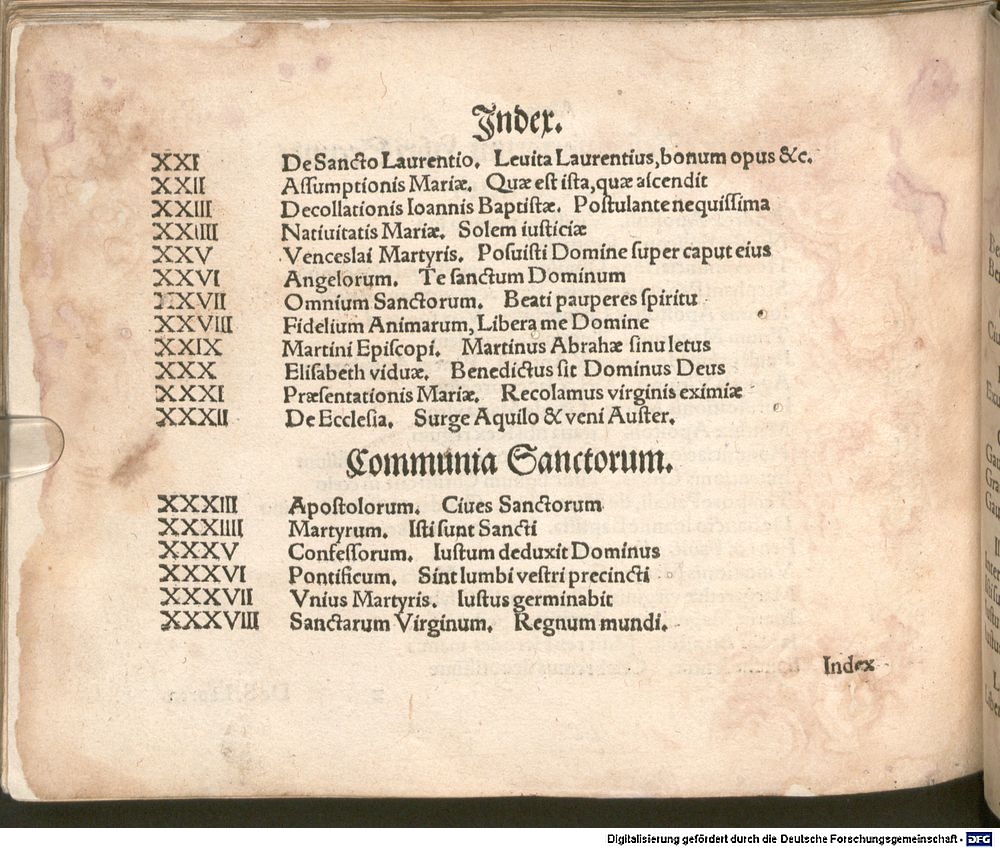 Index.
XXI De Sancto Laurentio. Leuita Laurentius, bonum opus &c.
XXII Aſſumptionis Mariæ. Quæ eſt iſta, quæ aſcendit
XXIII Decollationis Ioannis Baptiſtæ. Poſtulante nequiſſima
XXIIII Natiuitatis Mariæ. Solem iuſticiæ
XXV Venceslai Martyris. Poſuiſti Domine ſuper caput eius
XXVI Angelorum. Te ſanctum Dominum
XXVII Omnium Sanctorum. Beati pauperes ſpiritu
XXVIII Fidelium Animarum, Libera me Domine
XXIX Martini Epiſcopi. Martinus Abrahæ ſinu letus
XXX Eliſabeth viduæ. Benedictus ſit Dominus Deus
XXXI Præſentationis Mariæ. Recolamus virginis eximiæ
XXXII De Eccleſia. Surge Aquilo & veni Auſter.
Communia Sanctorum.
XXXIII Apoſtolorum. Ciues Sanctorum
XXXIIII Martyrum. Iſti ſunt Sancti
XXXV Confeſſorum. Iuſtum deduxit Dominus
XXXVI Pontificum. Sint lumbi veſtri precincti
XXXVII Vnius Martyris. Iuſtus germinabit
XXXVIII Sanctarum Virginum. Regnum mundi.
Index
Digitalisierung gefördert durch die Deutsche Forschungsgemeinschaft - DFG